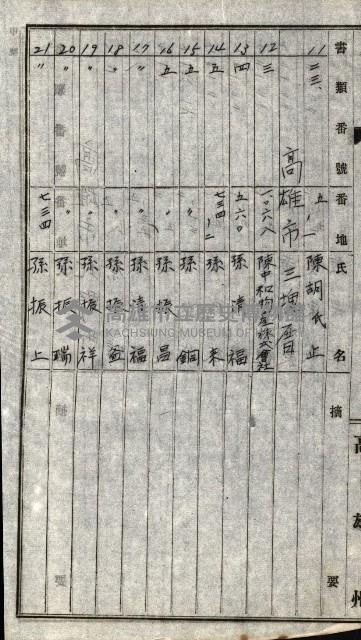 書類番號 番地 氏名 摘要
11 二三、 五ノ一 陳胡氏止
高雄市三塊厝
12 三 一〇六八 陳中和物產株式會社
13 四 五六〇 孫清福
14 五 七三四ノ二 孫来
15 五 〃 孫銅
16 五 〃 孫振昌
17 〃 〃 孫清福
18 〃 〃 孫振益
19 〃 〃 孫振祥
20 〃 〃 孫振瑞
21 〃 七三四 孫振上
高雄州
高雄市立歷史博物館
KAOHSIUNG MUSEUM OF HISTORY